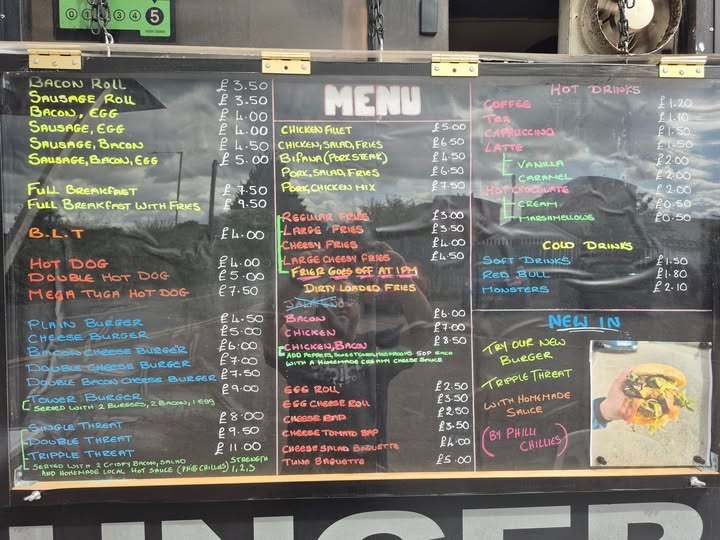 0 1 2 3 4 5
VERY GOOD
BACON ROLL £3.50
SAUSAGE ROLL £3.50
BACON, EGG £4.00
SAUSAGE, EGG £4.00
SAUSAGE, BACON £4.50
SAUSAGE, BACON, EGG £5.00
FULL BREAKFAST £7.50
FULL BREAKFAST WITH FRIES £9.50
B.L.T £4.00
HOT DOG £4.00
DOUBLE HOT DOG £5.00
MEGA TUGA HOT DOG £7.50
PLAIN BURGER £4.50
CHEESE BURGER £5.00
BACON CHEESE BURGER £6.00
DOUBLE CHEESE BURGER £7.00
DOUBLE BACON CHEESE BURGER £7.50
TOWER BURGER £9.00
SERVED WITH 2 BURGERS, 2 BACON, 1 EGG
SINGLE THREAT £8.00
DOUBLE THREAT £9.50
TRIPPLE THREAT £11.00
SERVED WITH 2 CRISPY BACON, SALAD
AND HOMEMADE LOCAL HOT SAUCE (PHILLI CHILLIES) STRENGTH 1,2,3
MENU
CHICKEN FILLET £5.00
CHICKEN, SALAD, FRIES £6.50
BIFANA (PORK STEAK) £4.50
PORK, SALAD, FRIES £6.50
PORK, CHICKEN MIX £7.50
REGULAR FRIES £3.00
LARGE FRIES £3.50
CHEESY FRIES £4.00
LARGE CHEESY FRIES £4.50
FRIER GOES OFF AT 1PM
DIRTY LOADED FRIES
BACON £6.00
CHICKEN £7.00
CHICKEN, BACON £8.50
ADD PEPPERS, SWEETCORN, MUSHROOMS 50P EACH
WITH A HOMEMADE CREAMY CHEESE SAUCE
EGG ROLL £2.50
EGG CHEESE ROLL £3.50
CHEESE BAP £2.50
CHEESE TOMATO BAP £3.50
CHEESE SALAD BAGUETTE £4.00
TUNA BAGUETTE £5.00
HOT DRINKS
COFFEE £1.20
TEA £1.10
CAPPUCCINO £1.50
LATTE £1.50
VANILLA £2.00
CARAMEL £2.00
HOT CHOCOLATE £2.00
CREAM £0.50
MARSHMELLOWS £0.50
COLD DRINKS
SOFT DRINKS £1.50
RED BULL £1.80
MONSTERS £2.10
NEW IN
TRY OUR NEW
BURGER
TRIPPLE THREAT
WITH HOMEMADE
SAUCE
(BY PHILLI
CHILLIES)